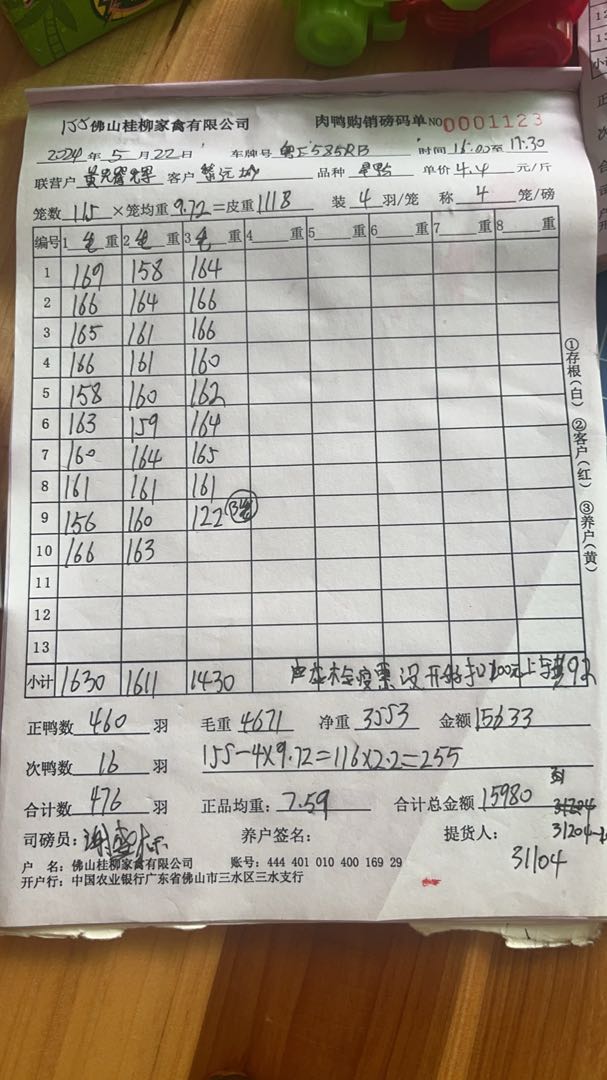 155 佛山桂柳家禽有限公司 肉鸭购销磅码单 NO 0001123
2024年5月22日 车牌号 粤E585RB 时间 16:00至17:30
联营户 客户 品种 单价 4.4 元/斤
笼数 115 ×笼均重 9.72=皮重 1118 装 4 羽/笼 称 4 笼/磅
编号 1 毛 重 2 毛 重 3 毛 重 4 重 5 重 6 重 7 重 8 重
1 169 158 164
2 166 164 166
3 165 161 166
4 166 161 160
5 158 160 162
6 163 159 164
7 160 164 165
8 161 161 161
9 156 160 122 (3笼)
10 166 163
11
12
13
小计 1630 1611 1430
正鸭数 460 羽 毛重 4671 净重 3553 金额 15633
次鸭数 16 羽 155-4×9.72=116×2.2=255
合计数 476 羽 正品均重: 7.59 合计总金额 15980
31204
司磅员: 养户签名: 提货人: 31204
31104
户 名: 佛山桂柳家禽有限公司 账号: 444 401 010 400 169 29
开户行: 中国农业银行广东省佛山市三水区三水支行
①存根(白) ②客户(红) ③养户(黄)